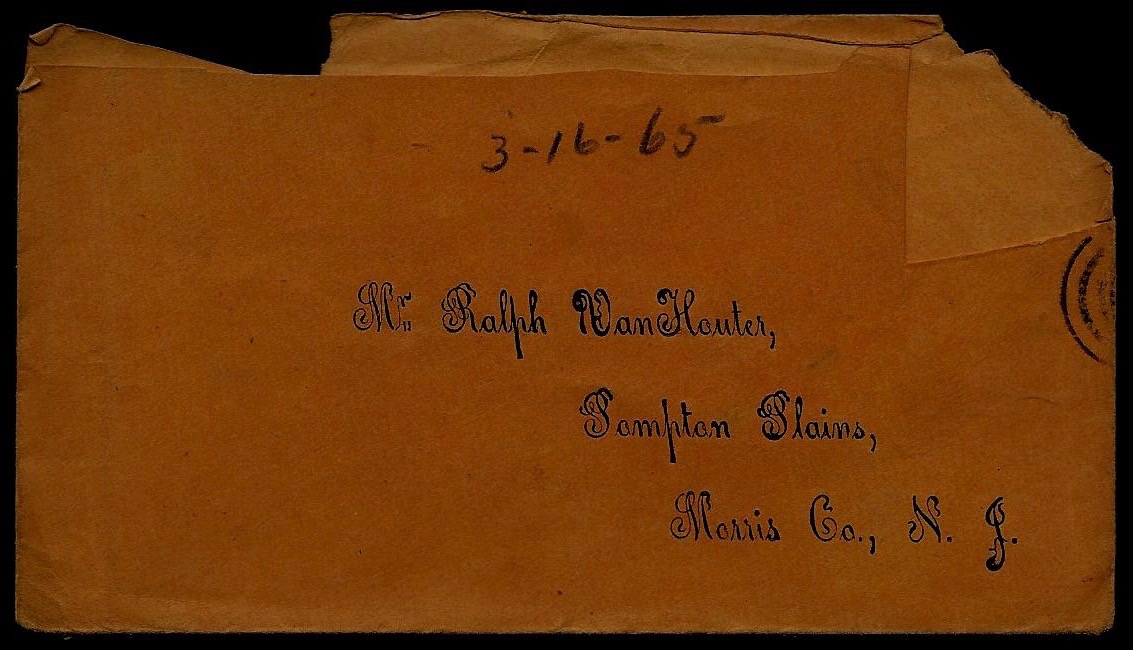 3-16-65
Mr. Ralph VanHouter,
Pompton Plains,
Morris Co., N. J.